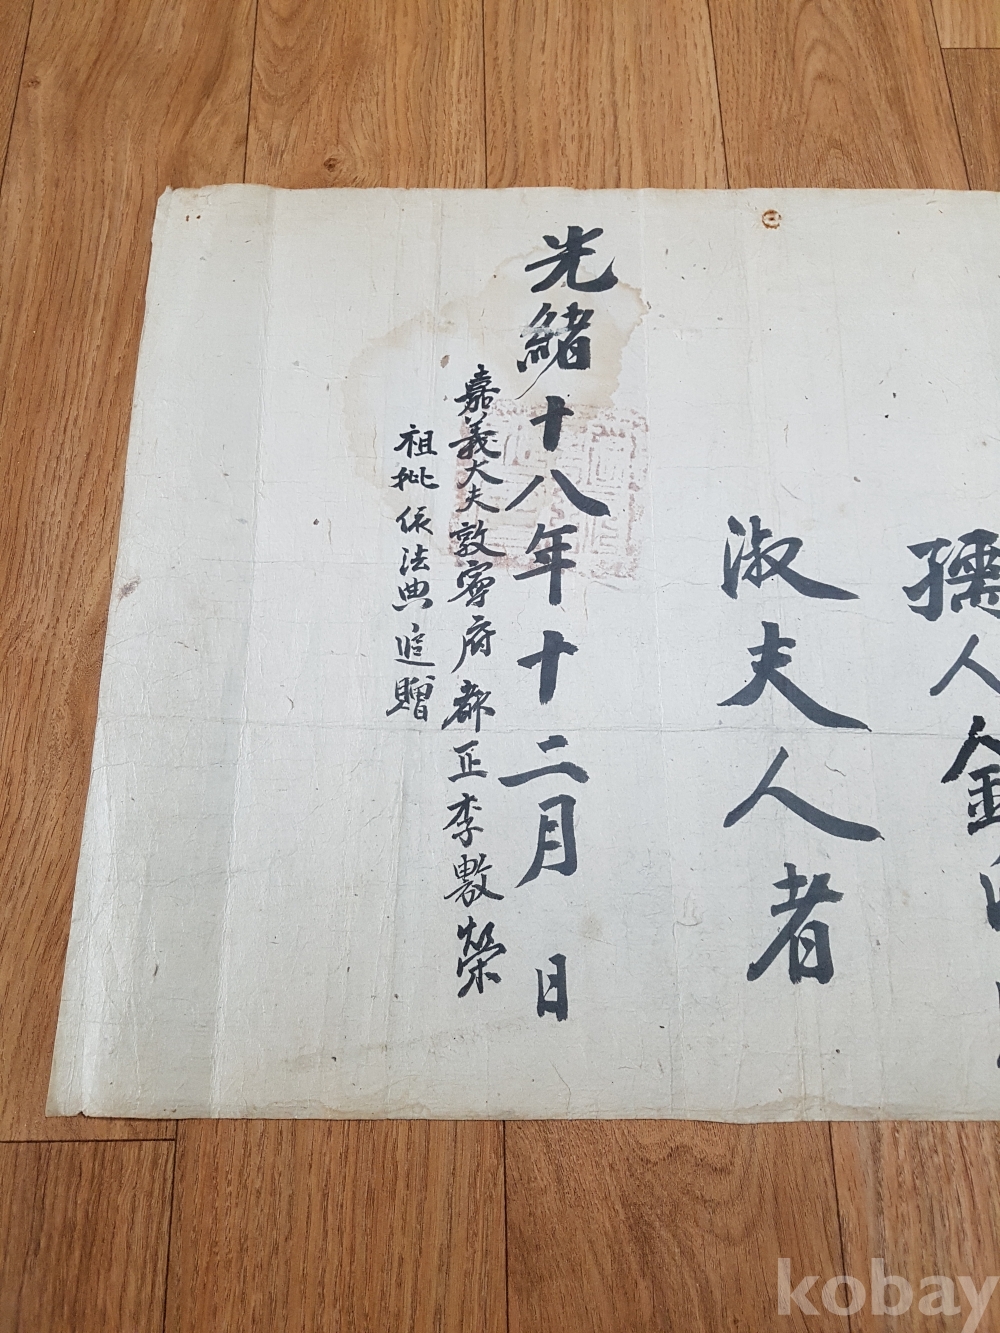 孺人金
淑夫人者
光緒十八年十二月 日
嘉義大夫敦寧府都正李敷榮
祖妣依法典追贈
kobay